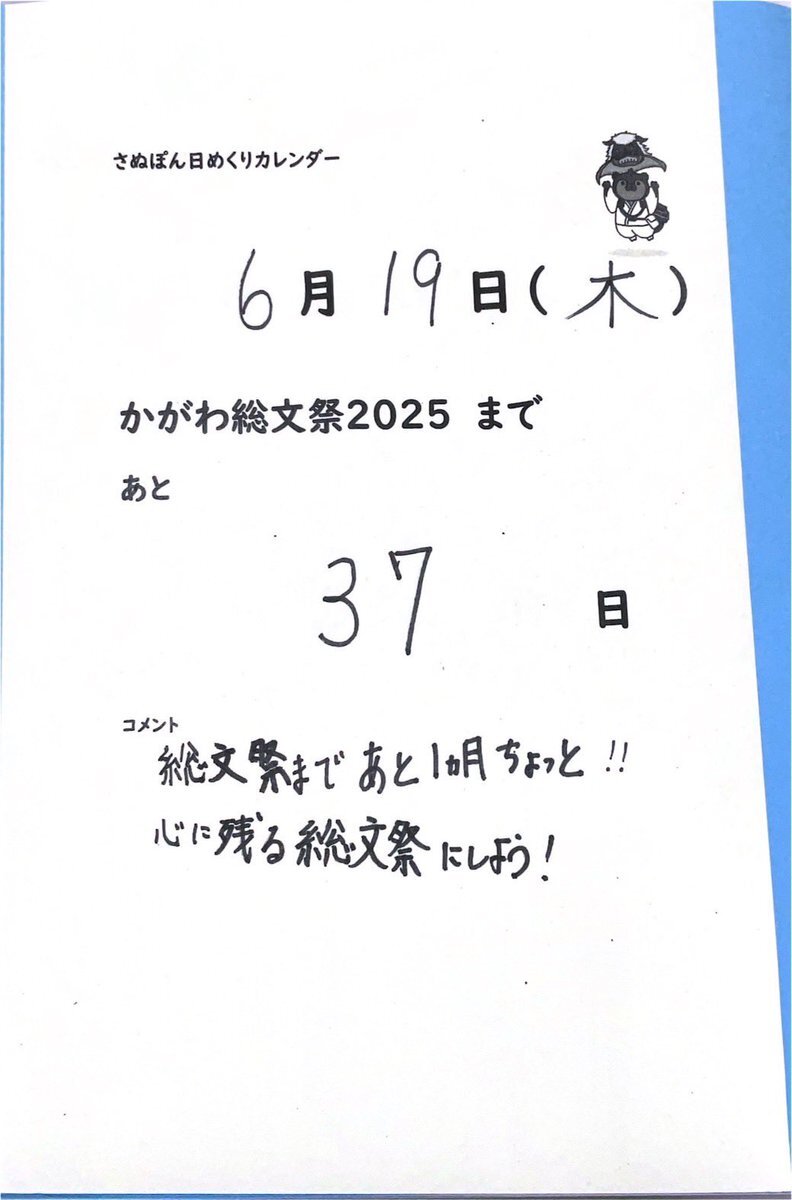 さぬぽん日めくりカレンダー
6月19日(木)
かがわ総文祭2025 まで
あと
37 日
コメント
総文祭まであと1ヵ月ちょっと!!
心に残る総文祭にしよう!